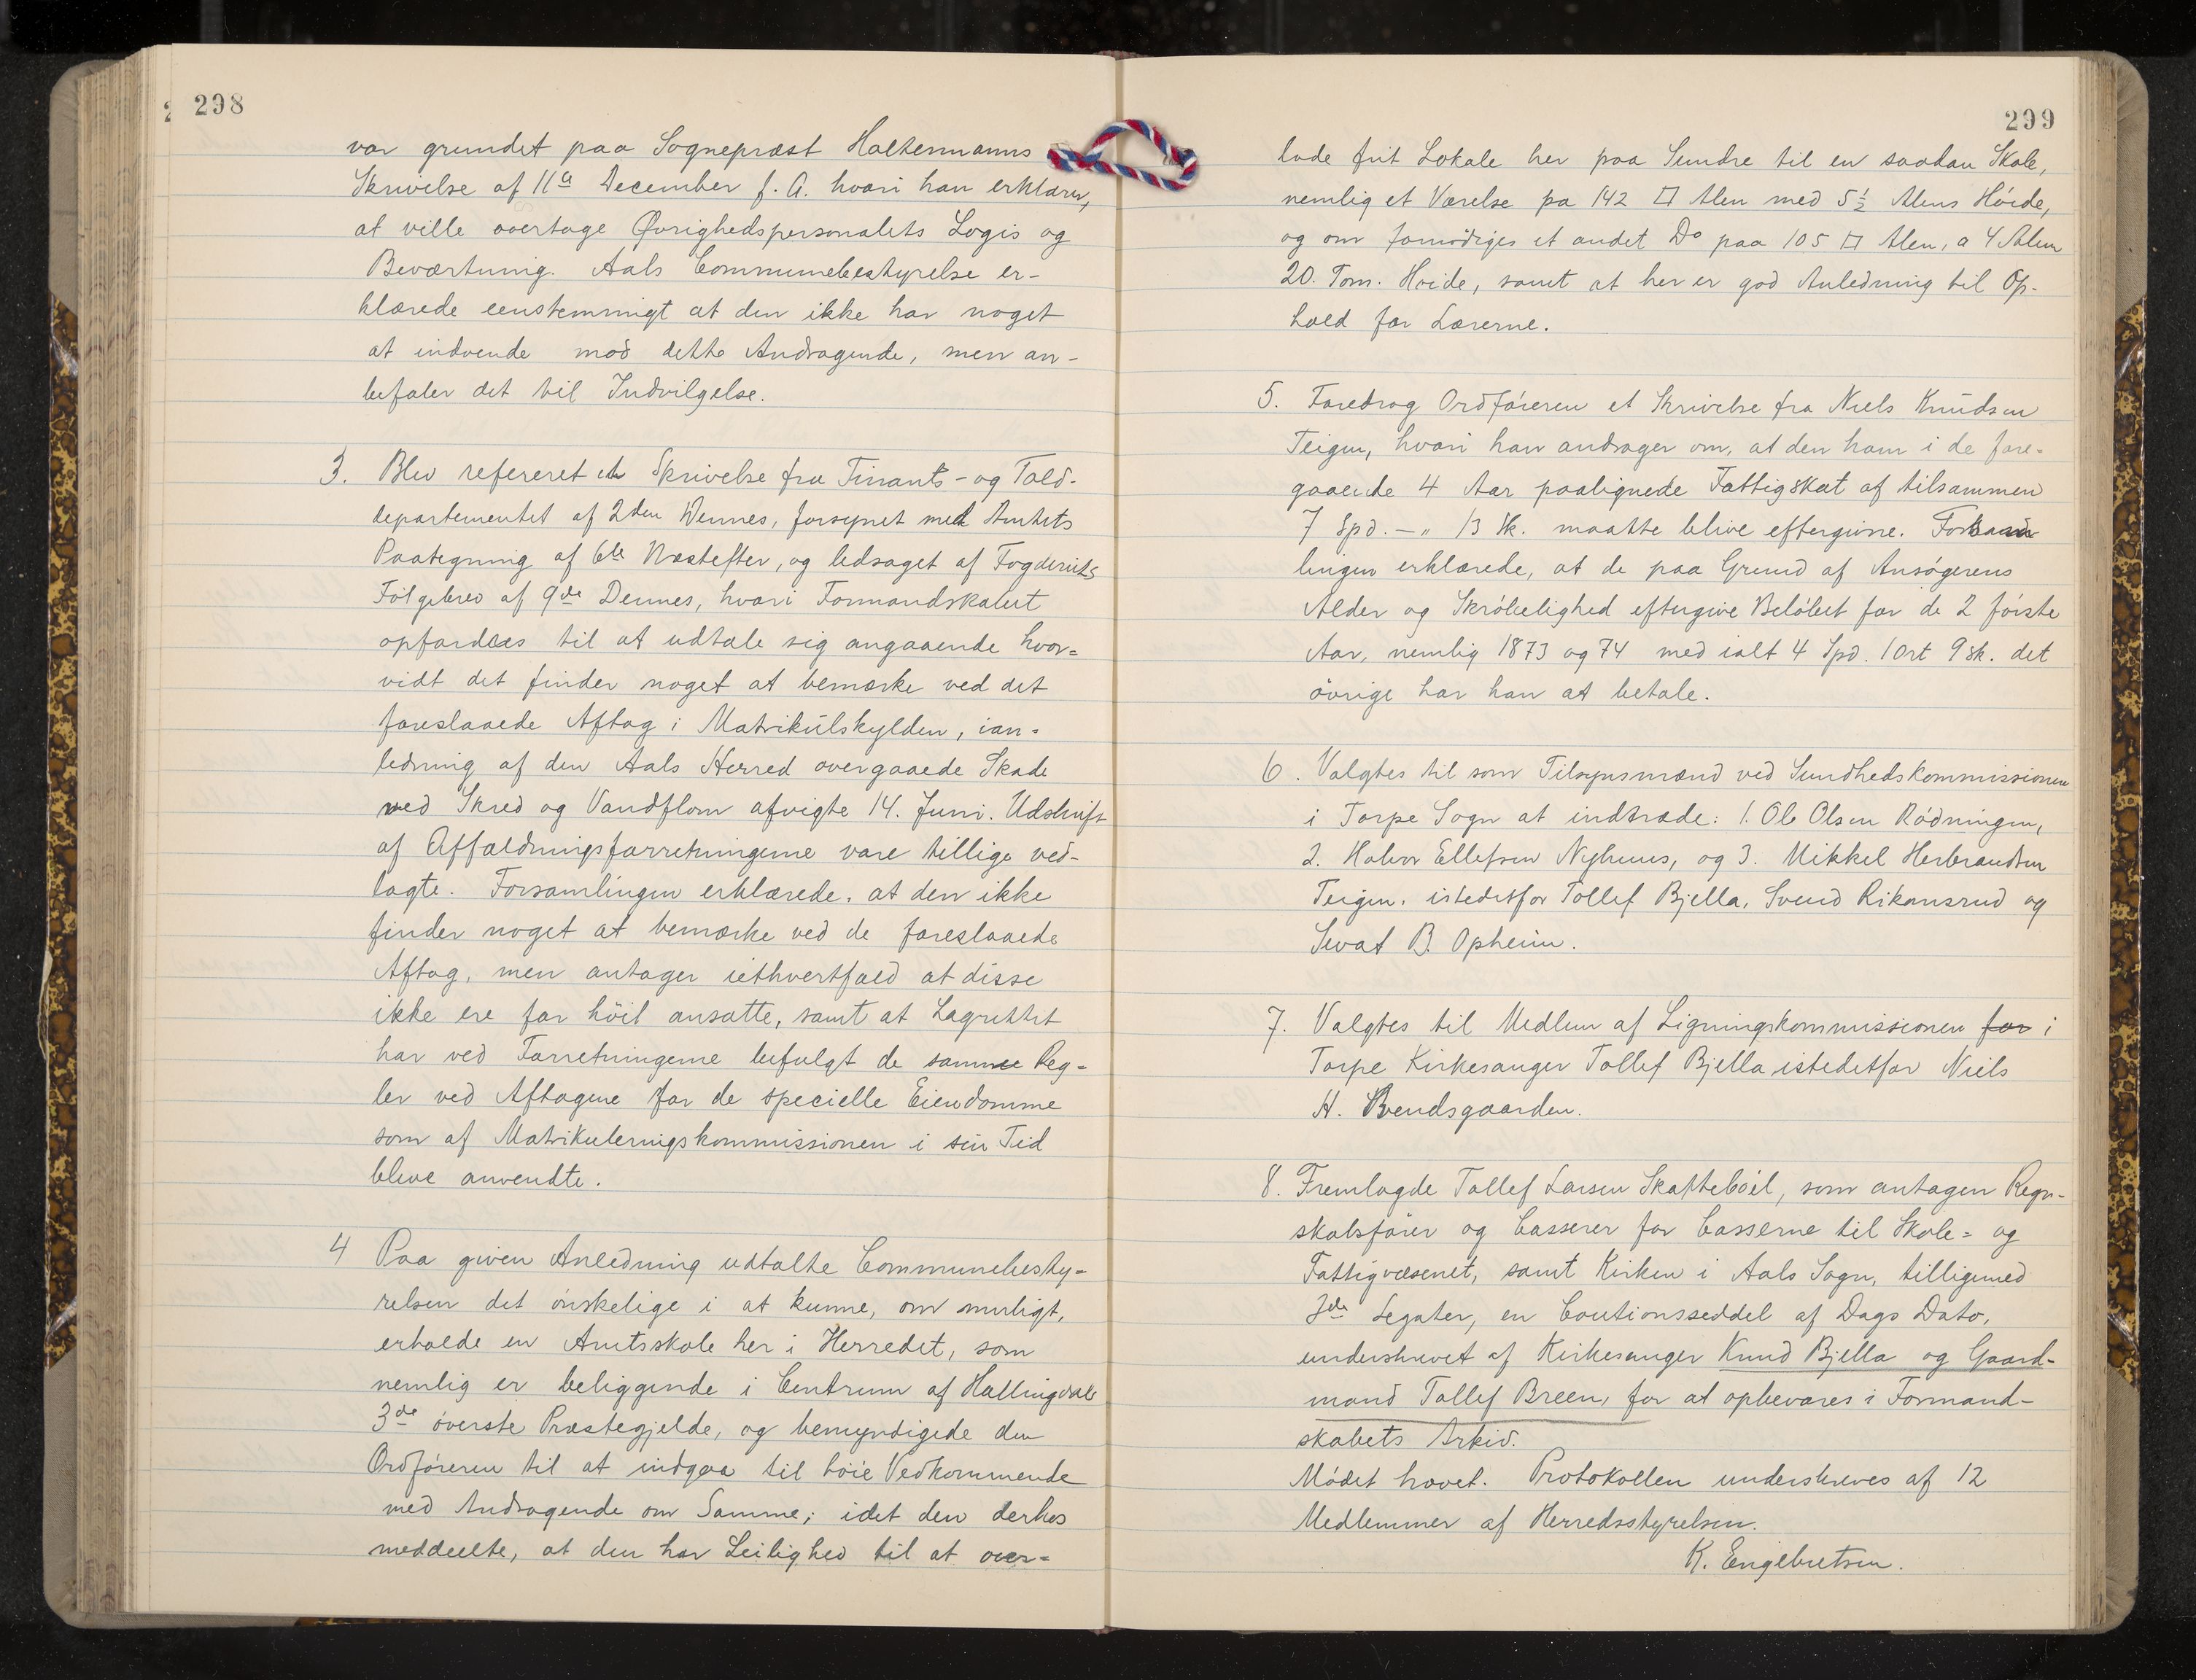 298
var grundet paa Sognepræst Haltermanns
Skrivelse af 11te December f. A. hvori han erklærer,
at ville overtage Øvrighedspersonalets Logis og
Beværtning. Aals Communebestyrelse er-
klærede eenstemmigt at den ikke har noget
at indvende mod dette Andragende, men an-
befaler det til Indvilgelse.
3. Blev refereret en Skrivelse fra Finants- og Told-
departementet af 2den Dennes, forsynet med Amtets
Paategning af 6te Næstefter, og ledsaget af Fogderiets
Følgebrev af 9de Dennes, hvori Formandskabet
opfordres til at udtale sig angaaende hvor-
vidt det finder noget at bemærke ved det
foreslaaede Aftag i Matrikulskylden, ian-
ledning af den Aals Herred overgaaede Skade
ved Skred og Vandflom afvigte 14. Juni. Udskrift
af Affældningsforretningerne vare tillige ved-
lagte. Forsamlingen erklærede, at den ikke
finder noget at bemærke ved de foreslaaede
Aftag, men antager iethvertfald at disse
ikke ere for höit ansatte, samt at Lagrettet
har ved Forretningerne befulgt de samme Reg-
ler ved Aftagene for de specielle Eiendomme
som af Matrikuleringskommissionen i sin Tid
bleve anvendte.
4 Paa given Anledning udtalte Communebesty-
relsen det ønskelige i at kunne, om muligt,
erholde en Amtsskole her i Herredet, som
nemlig er beliggende i Centrum af Hallingdals
3de øverste Præstegjelde, og bemyndigede den
Ordføreren til at indgaa til høie Vedkommende
med Andragende om Samme; idet den derhos
meddeelte, at den har Leilighed til at over-
299
lade frit Lokale her paa Sundre til en saadan Skole,
nemlig et Værelse pa 142 □ Alen med 5½ Alens Høide,
og om fornødiges et andet Do paa 105 □ Alen, a 4 Alen
20. Tom. Høide, samt at her er god Anledning til Op-
hold for Lærerne.
5. Foredrog Ordføreren et Skrivelse fra Niels Knudsen
Teigen, hvori han andrager om, at den ham i de fore-
gaaende 4 Aar paalignede Fattigskat af tilsammen
7 Spd. – " 13 Sk. maatte blive eftergivne. Forsam
lingen erklærede, at de paa Grund af Ansøgerens
Alder og Skrøbelighed eftergive Beløbet for de 2 første
Aar, nemlig 1873 og 74 med ialt 4 Spd. 1 ort 9 sk. det
øvrige har han at betale.
6. Valgtes til som Tilsynsmænd ved Sundhedskommissionen
i Torpe Sogn at indtræde: 1. Ole Olsen Rødningen,
2. Halvor Ellefsen Nyhuus, og 3. Mikkel Herbrandsen
Teigen, istedetfor Tollef Bjella, Svend Rikansrud og
Sevat B. Opheim.
7. Valgtes til Medlem af Ligningskommissionen for i
Torpe Kirkesanger Tollef Bjella istedetfor Niels
H. Svendsgaarden.
8. Fremlagde Tollef Larsen Skaftebøl, som antagen Regn-
skabsfører og Casserer for Casserne til Skole= og
Fattigvæsenet, samt Kirken i Aals Sogn, tilligemed
3de Legater, en Cautionsseddel af Dags Dato,
underskrevet af Kirkesanger Knud Bjella og Gaard-
mand Tollef Breen, for at opbevares i Formand-
skabets Arkiv.
Mødet hævet. Protokollen underskreves af 12
Medlemmer af Herredsstyrelsen.
K. Engebretsen.